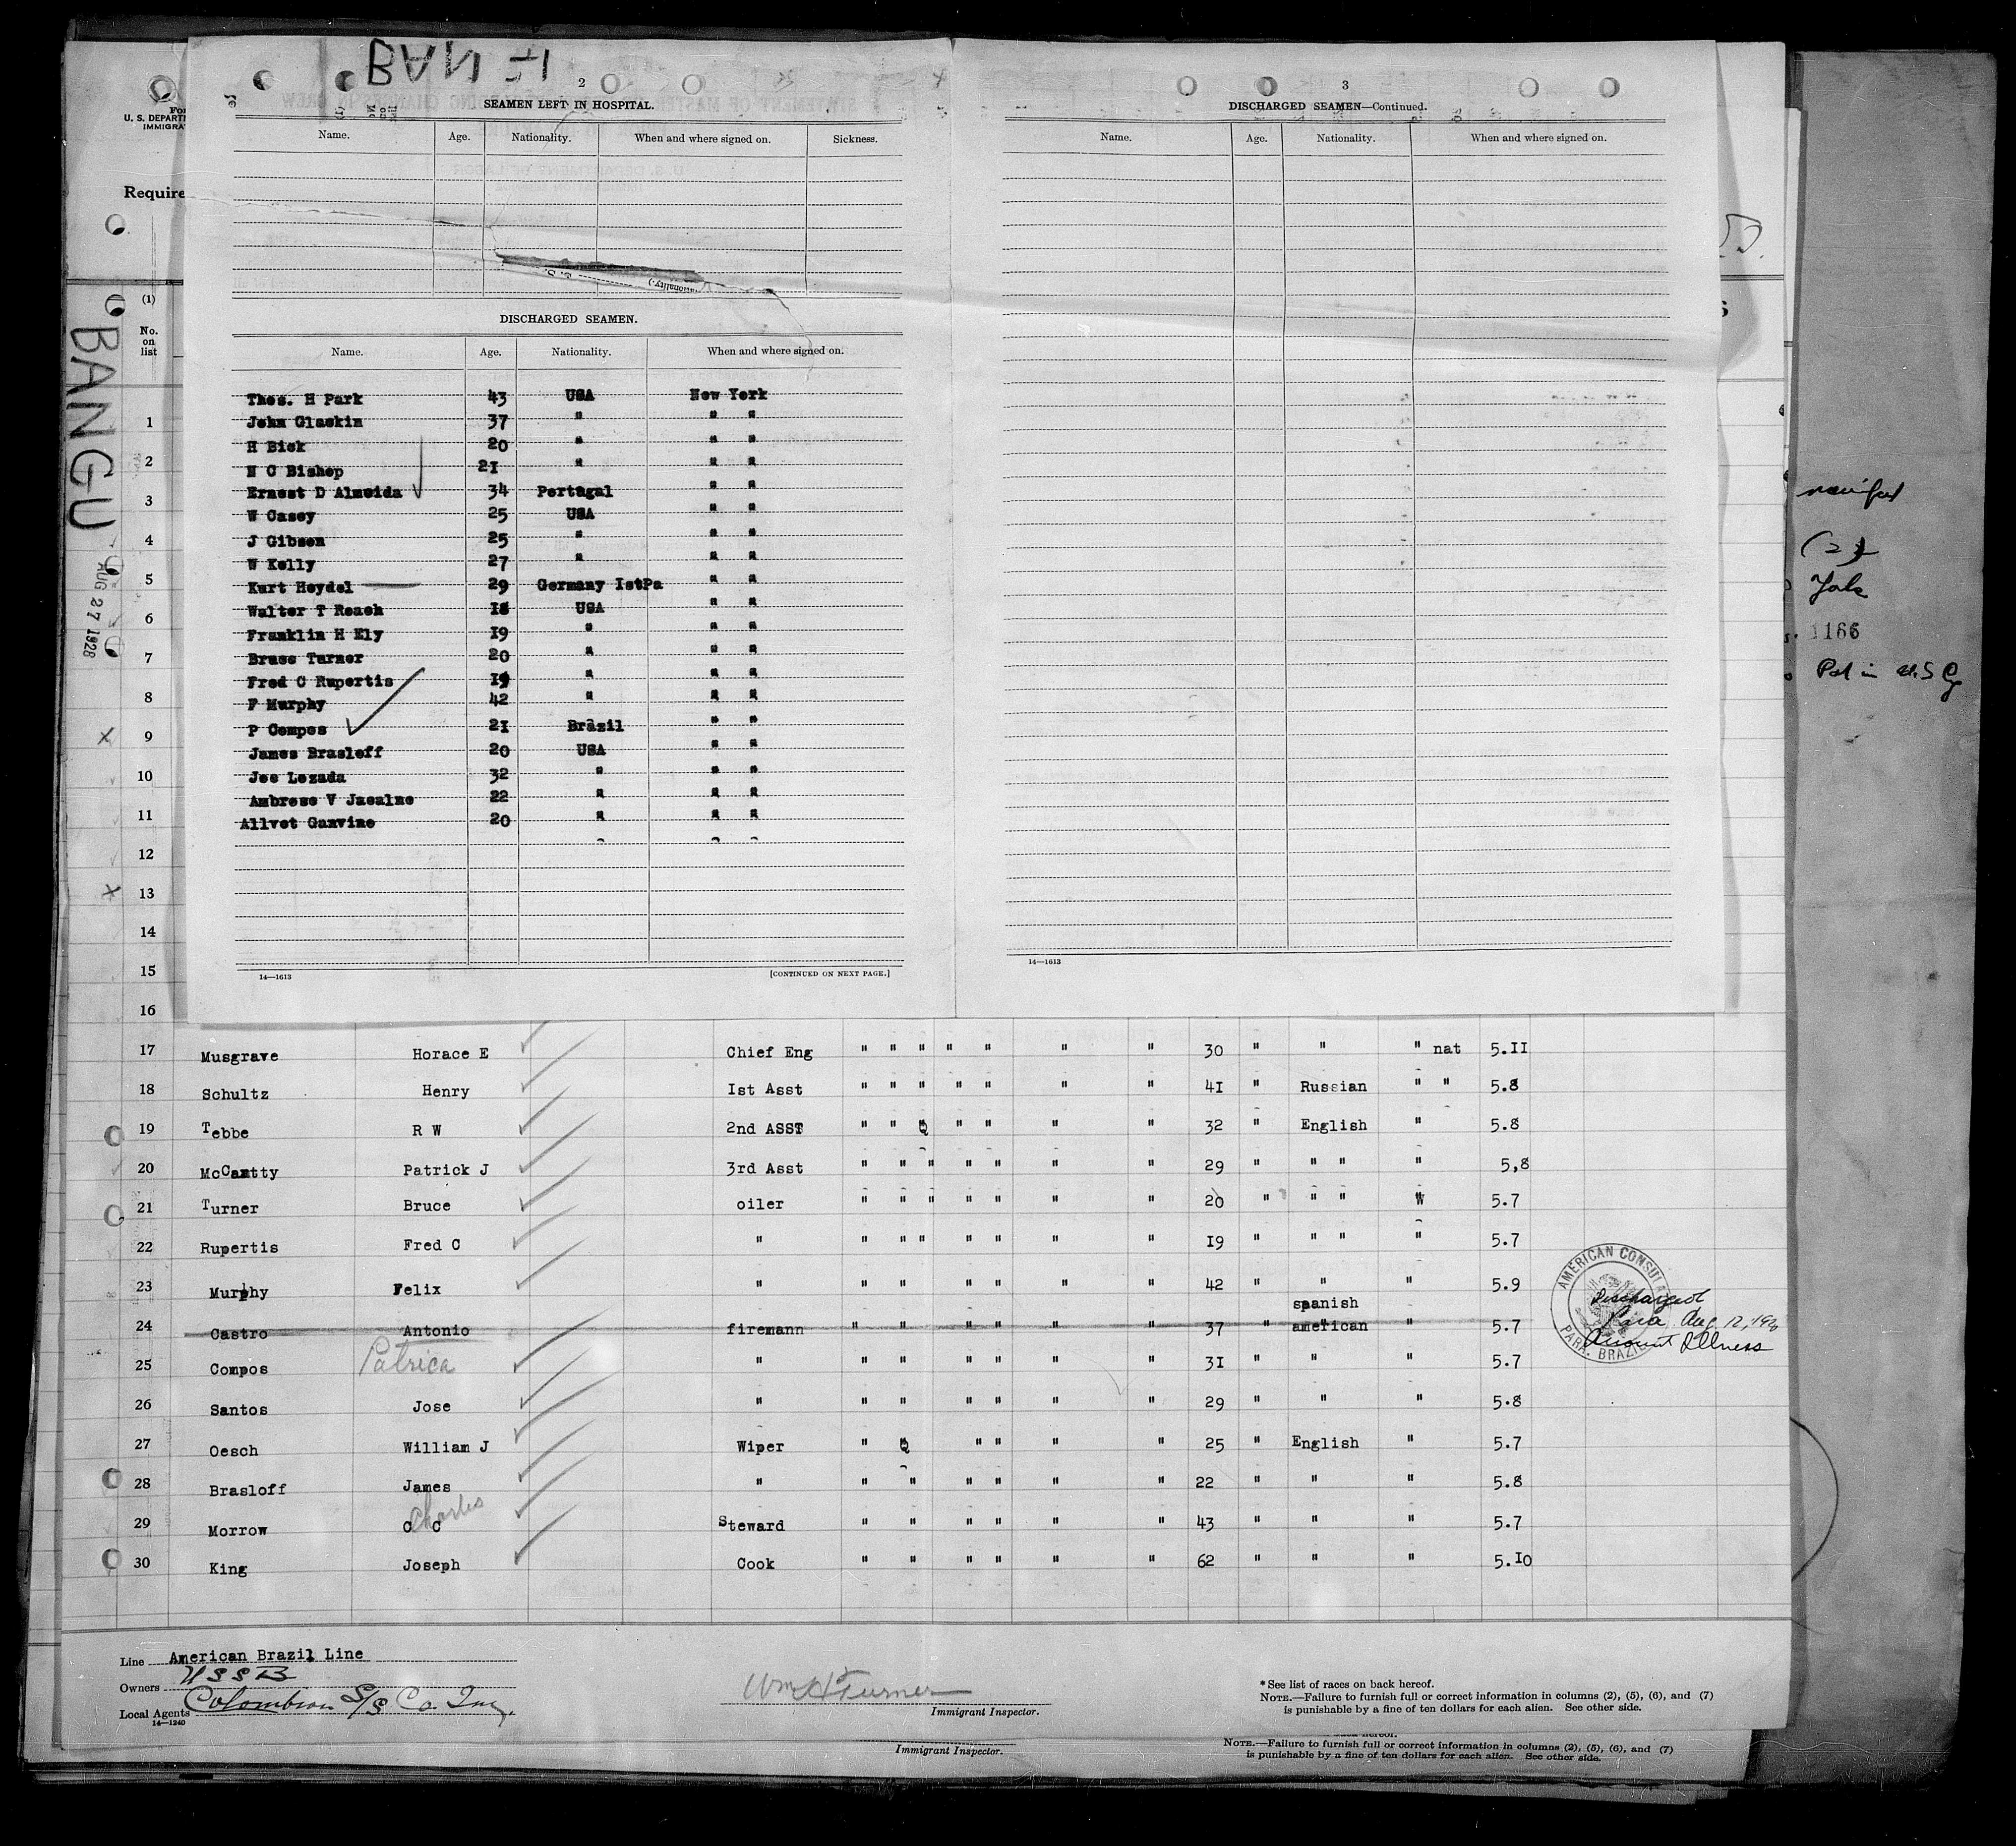 BAN
2
SEAMEN LEFT IN HOSPITAL.
Name. Age. Nationality. When and where signed on. Sickness.
DISCHARGED SEAMEN.
Name. Age. Nationality. When and where signed on.
Thos. H Park 43 USA New York
John Glaskin 37 " " "
H Bick 20 " " "
N C Bishop 21 " " "
Ernest D Almeida 34 Portugal " "
W Casey 25 USA " "
J Gibson 25 " " "
W Kelly 27 " " "
Kurt Heydel 29 Germany IstPa " "
Walter T Roach 18 USA " "
Franklin H Ely 19 " " "
Bruce Turner 20 " " "
Fred C Rupertis 19 " " "
F Murphy 42 " " "
P Compos 21 Brazil " "
James Brasloff 20 USA " "
Joe Lozada 32 " " "
Ambrose V Jacalne 22 " " "
Allvet Ganvine 20 " " "
14—1613 [CONTINUED ON NEXT PAGE.]
3
DISCHARGED SEAMEN—Continued.
Name. Age. Nationality. When and where signed on.
14—1613
U. S. DEPARTM
IMMIGRAT
Require
BANGU
AUG 27 1928
(1)
No.
on
list
1
2
3
4
5
6
7
8
x 9
10
11
12
x 13
14
15
16
17 Musgrave Horace E Chief Eng " " " " " " " 30 " " " nat 5.II
18 Schultz Henry Ist Asst " " " " " " " 4I " Russian " " 5.8
19 Tebbe R W 2nd ASST " " " " " " 32 " English " 5.8
20 McCamtty Patrick J 3rd Asst " " " " " " " 29 " " " " 5,8
21 Turner Bruce oiler " " " " " " " 20 " " " W 5.7
22 Rupertis Fred C " " " " " " " " I9 " " " " 5.7
23 Murphy Felix " " " " " " " 42 " " " 5.9
spanish
24 Castro Antonio firemann " " " " " " 37 " american " 5.7
25 Compos Patrica " " " " " " " 3I " " " 5.7
26 Santos Jose " " " " " " " 29 " " " 5.8
27 Oesch William J Wiper " " " " " " 25 " English " 5.7
28 Brasloff James " " " " " " " 22 " " " 5.8
Charles
29 Morrow C C Steward " " " " " " 43 " " " 5.7
30 King Joseph Cook " " " " " " 62 " " " 5.I0
AMERICAN CONSULA
PARA, BRAZIL
Discharged
Para Aug 12, 192
Account Illness
1166
Line American Brazil Line
Owners U S S B
Local Agents Colombian S/S Co Inc.
14—1240
Wm H Turner
Immigrant Inspector.
* See list of races on back hereof.
NOTE.—Failure to furnish full or correct information in columns (2), (5), (6), and (7)
is punishable by a fine of ten dollars for each alien. See other side.
Immigrant Inspector.
NOTE.—Failure to furnish full or correct information in columns (2), (5), (6), and (7)
is punishable by a fine of ten dollars for each alien. See other side.